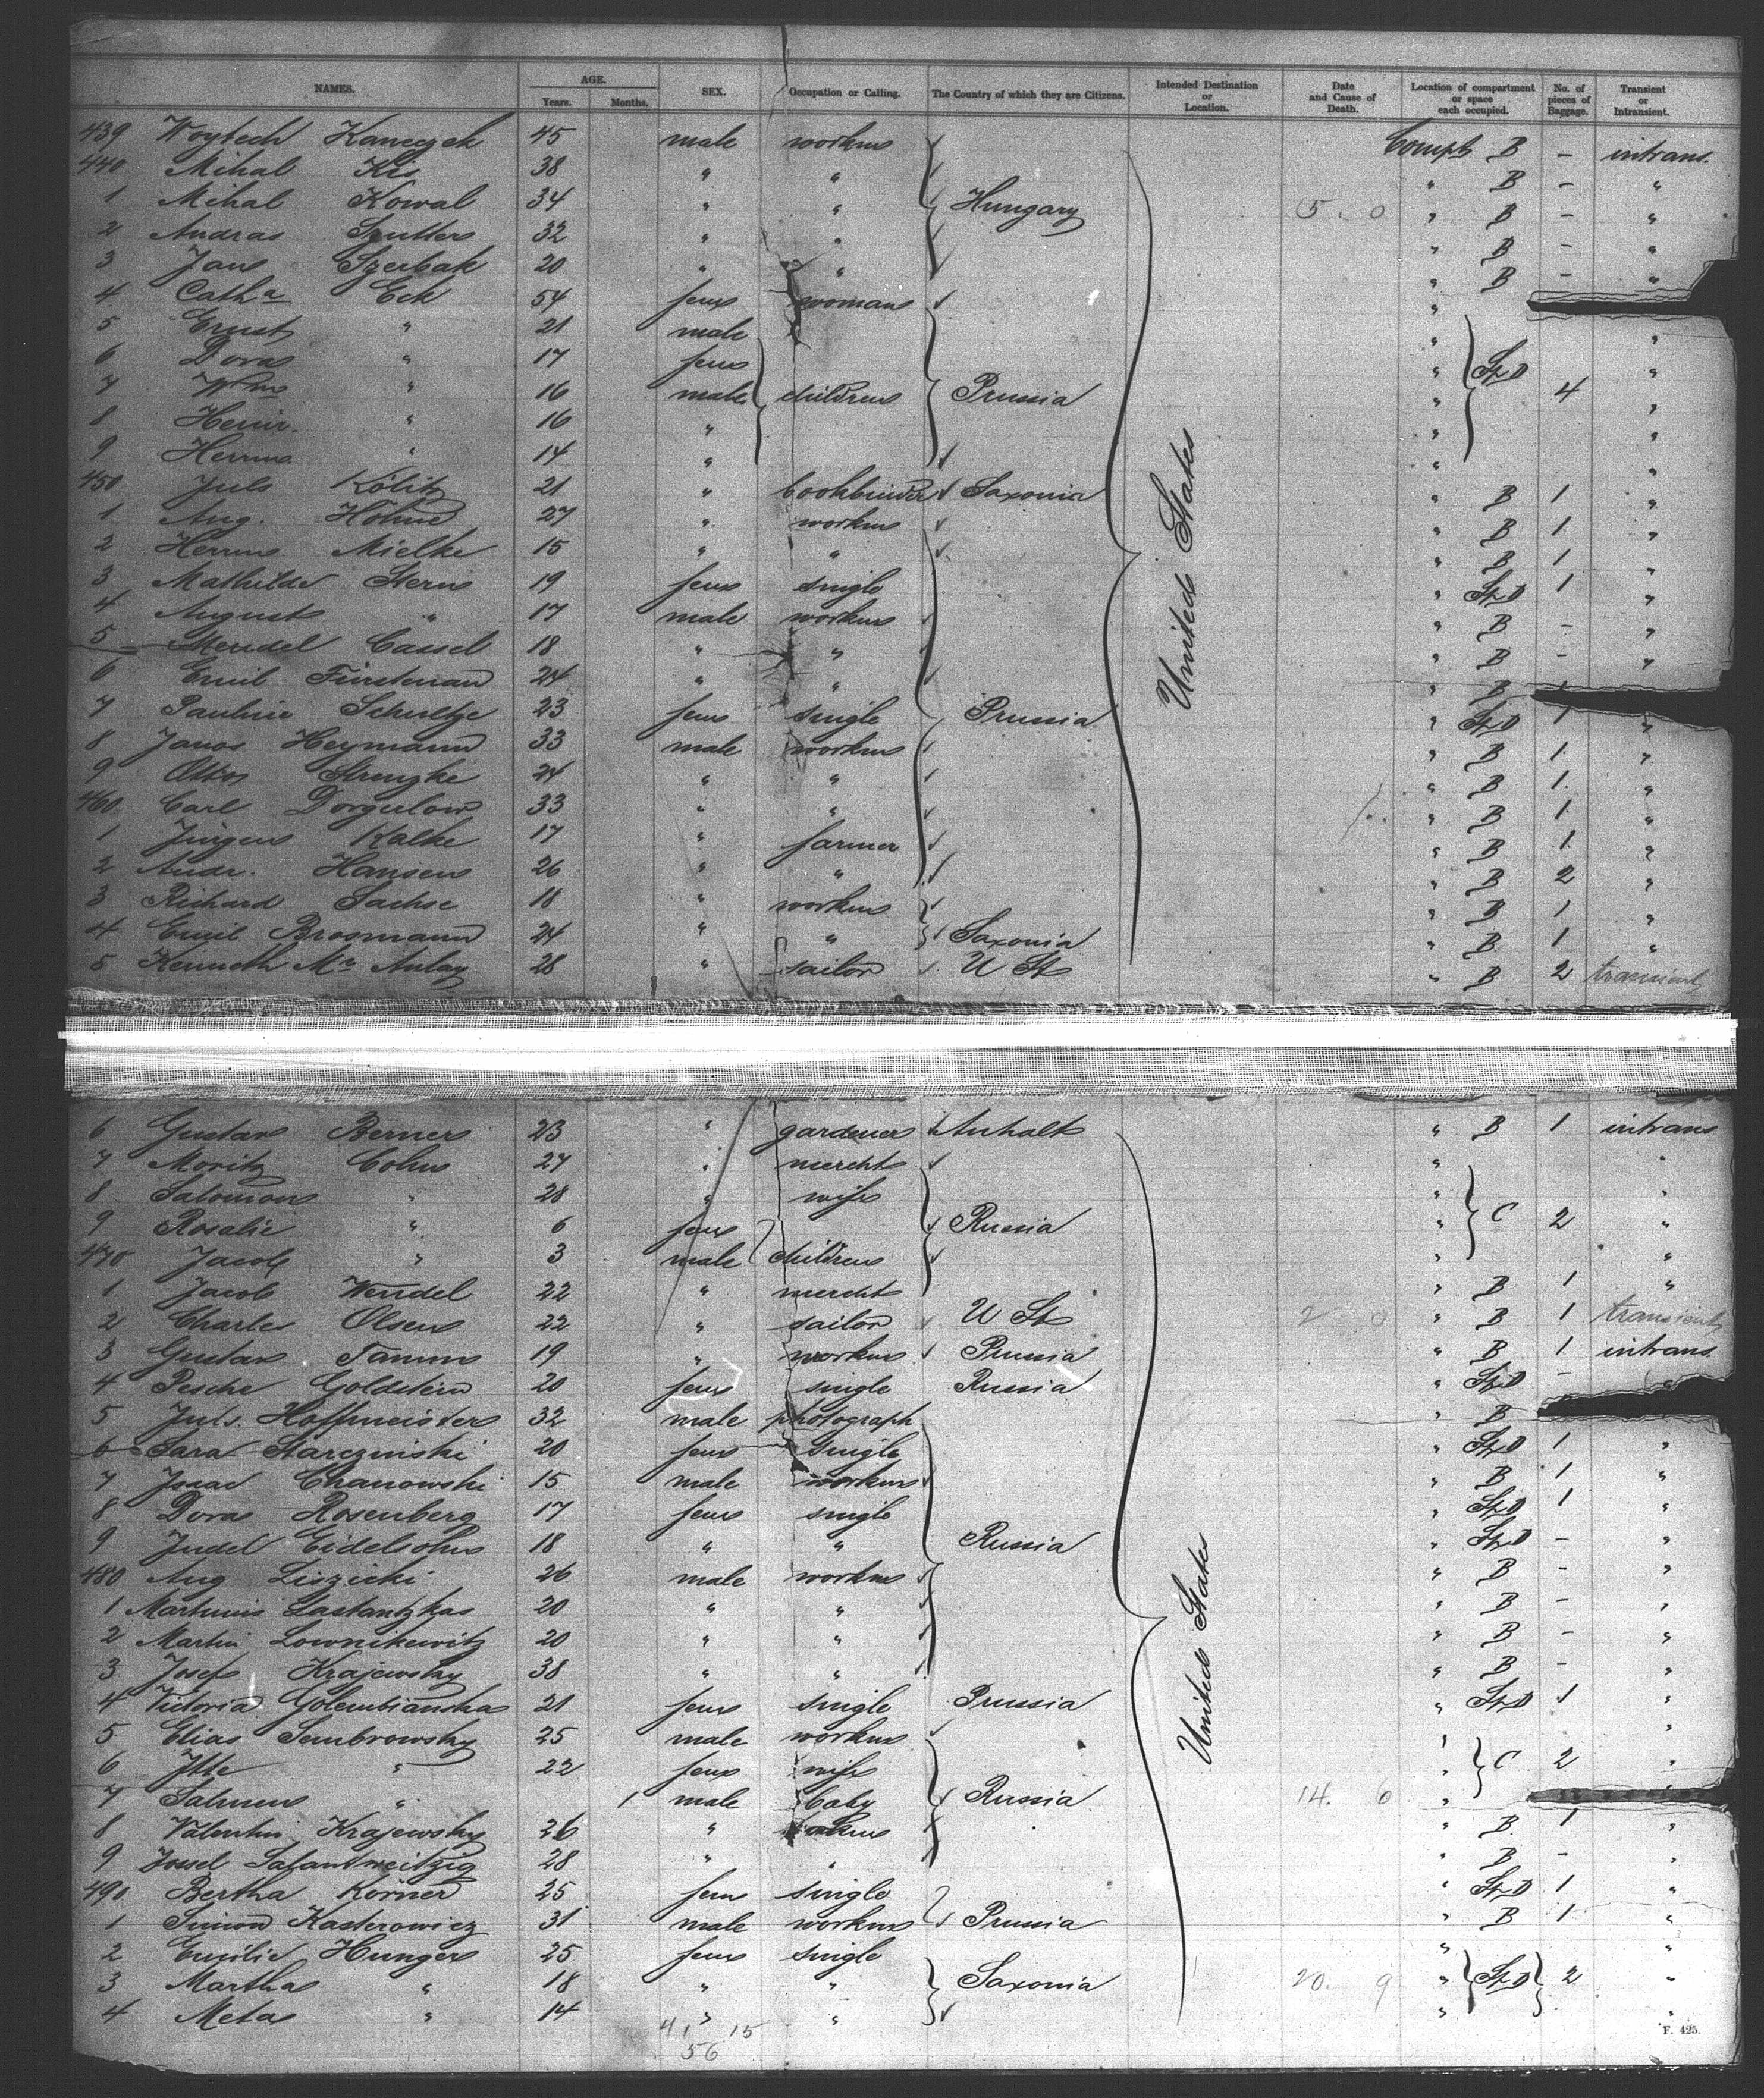 NAMES. AGE. SEX. Occupation or Calling. The Country of which they are Citizens. Intended Destination or Location. Date and Cause of Death. Location of compartment or space each occupied. No. of pieces of Baggage. Transient or Intransient.
Years. Months.
439 Woytech 45 male workm Compt B – intrans.
440 Mihal Kis 38 " " " B – "
1 Mihal Kowal 34 " " Hungary 15. 0 " B – "
2 Andras 32 " " " B – "
3 Jan Szerbak 20 " " " B – "
4 Cath a Eck 54 fem woman "
5 Ernst " 21 male " "
6 Dora " 17 fem " St D "
7 Wm " 16 male children Prussia " 4 "
8 Heinr. " 16 " " "
9 Herm " 14 " " "
450 Juls Kölitz 21 " bookbinder Saxonia " B 1 "
1 Aug. Höhne 27 " workm " B 1 "
2 Herm Mielke 15 " " " B 1 "
3 Mathilde Stern 19 fem single " St D 1 "
4 August " 17 male workm " B – "
5 Mendel Cassel 18 " " " B – "
6 Emil Fürstenau 24 " " " B
7 Pauline Schultze 23 fem single Prussia " St D 1 "
8 Janos Heymann 33 male workm " B 1. "
9 Otto 24 " " " B 1. "
460 Carl Dorgerlow 33 " " " B 1. "
1 Jürgen Kalke 17 " farmer " B 1. "
2 Andr. Hansen 26 " " " B 2 "
3 Richard Sachse 18 " workm " B 1 "
4 Emil Brosmann 24 " " Saxonia " B 1 "
5 Kenneth Mc Aulay 28 " sailor U St " B 2 transient
United States
6 Gustav Berner 23 " gardener Anhalt " B 1 intrans
7 Moritz Cohn 27 " mercht " "
8 Salomon " 28 " wife " "
9 Rosalie " 6 fem Russia " C 2 "
470 Jacob " 3 male children " "
1 Jacob Wendel 22 " mercht " B 1 "
2 Charles Olsen 22 " sailor U St 2 0 " B 1 transient
3 Gustav Tamm 19 " workm Prussia " B 1 intrans.
4 Pesche Goldstein 20 fem single Russia " St D –
5 Juls. Hoffmeister 32 male photograph " B
6 Sara Starczinski 20 fem single " St D 1 "
7 Isaac Chanowski 15 male workm " B 1 "
8 Dora Rosenberg 17 fem single " St D 1 "
9 Judel Eidelsohn 18 " " Russia " St D – "
480 Aug Liszicki 26 male workm " B – "
1 20 " " " B – "
2 Martin Lownikewitz 20 " " " B – "
3 Josef Krajewsky 38 " " " B – "
4 Victoria Golembianska 21 fem single Prussia " St D 1 "
5 Elias Sembrowsky 25 male workm " "
6 Itte " 22 fem wife " C 2 "
7 Salmen " 1 male baby Russia 14. 6 "
8 Valentin Krajewsky 26 " workm " B 1 "
9 Jossel 28 " " " B – "
490 Bertha Körner 25 fem single " St D 1 "
1 Simon Kasterowicz 31 male workm Prussia " B 1 "
2 Emilie Hunger 25 fem single " "
3 Martha " 18 " " Saxonia 20. 9 " St D 2 "
4 Meta " 14 " " " "
United States
41 15
56
F. 425.